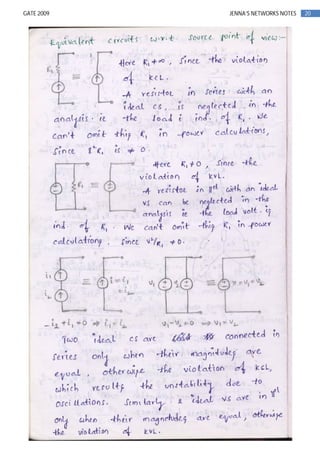 GATE 2009 JENNA'S NETWORKS NOTES 20
Equivalent circuits w.r.t source point of view:-
Here R₁≠∞, since the violation
of KCL.
R₁
-A resistor in series with an
ideal cs, is neglected in the
analysis. ie the load i ind. of R₁. We
can't omit this R₁ in power calculations,
Since i²R₁ is ≠ 0.
Here R₁≠0, since the
violation of KVL.
R₁
-A resistor in 11el with an ideal
vs can be neglected in the
analysis ie the load volt. is
ind. of R₁. We can't omit this R₁ in power
calculations, since v²/R₁ ≠ 0.
i₁ i=i₁ v₁ v₂ v=v₁=v₂
i₂ =i₂
-i₂+i₁=0 ⇒ i₁=i₂ v₁-v₂=0 ⇒ v₁=v₂
Two ideal cs are connected in
series only when their magnitudes are
equal, otherwise the violation of KCL,
which results the unstability due to
oscillations. Similarly 2 ideal vs are in 11el
only when their magnitudes are equal, otherwise
the violation of KVL.